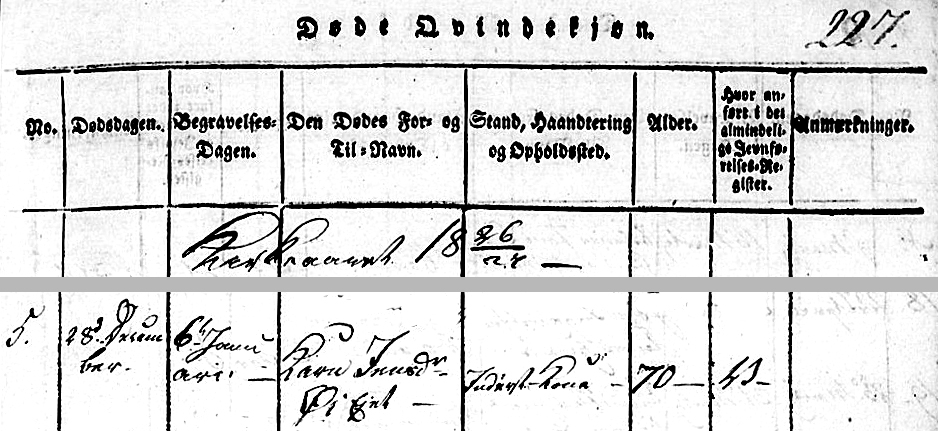 Døde Qvindekjøn.
227.
No.
Dødsdagen.
Begravelses-
Dagen.
Den Dødes For- og
Til-Navn.
Stand, Haandtering
og Opholdssted.
Alder.
Hvor an-
ført i det
almindeli-
ge Jevnfø-
relses-Re-
gister.
Anmærkninger.
Kirkeaaret 18 26/27 —
5.
28d Decem
ber.
6t Janu
ari. —
Karn Jensdr
Inderst-Kone —
70 —